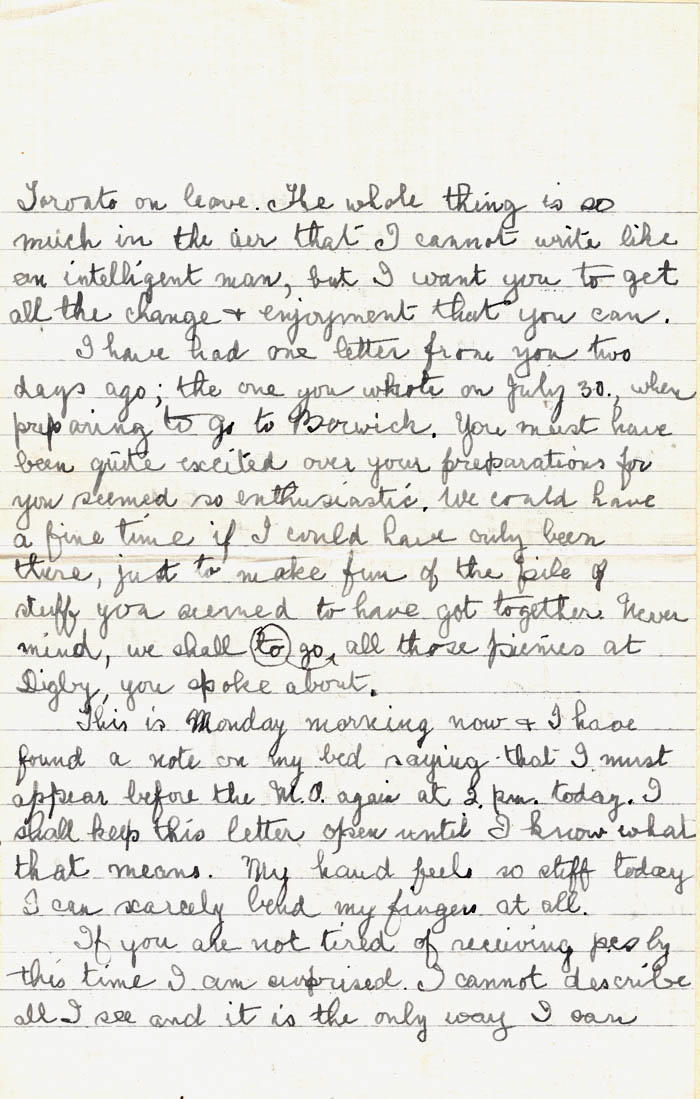 Toronto on leave. The whole thing is so
much in the aer that I cannot write like
an intelligent man, but I want you to get
all the change + enjoyment that you can.
I have had one letter from you two
days ago; the one you whote on July 30., when
preparing to go to Berwick. You must have
been quite excited over your preparations for
you seemed so enthusiastic. We could have
a fine time if I could have only been
there, just to make fun of the pile of
stuff you seemed to have got together. Never
mind, we shall to go, all those picnics at
Digby, you spoke about.
This is Monday morning now + I have
found a note on my bed saying that I must
appear before the M.O. again at 2. pm. today. I
shall keep this letter open until I know what
that means. My hand feels so stiff today
I can scarcely bend my fingers at all.
If you are not tired of receiving pcs by
this time I am surprised. I cannot describe
all I see and it is the only way I can